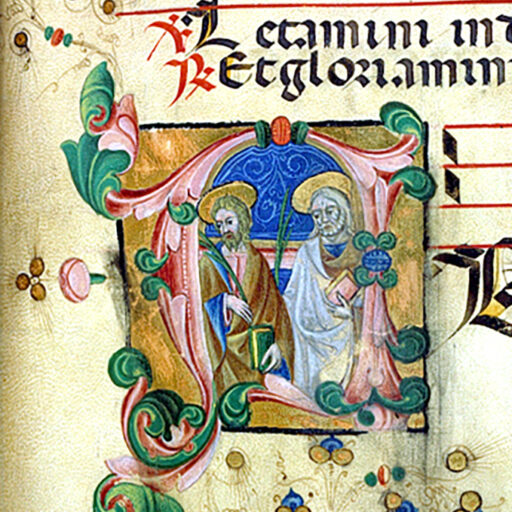 ℣ Letamini in d
℟ Et gloriamini